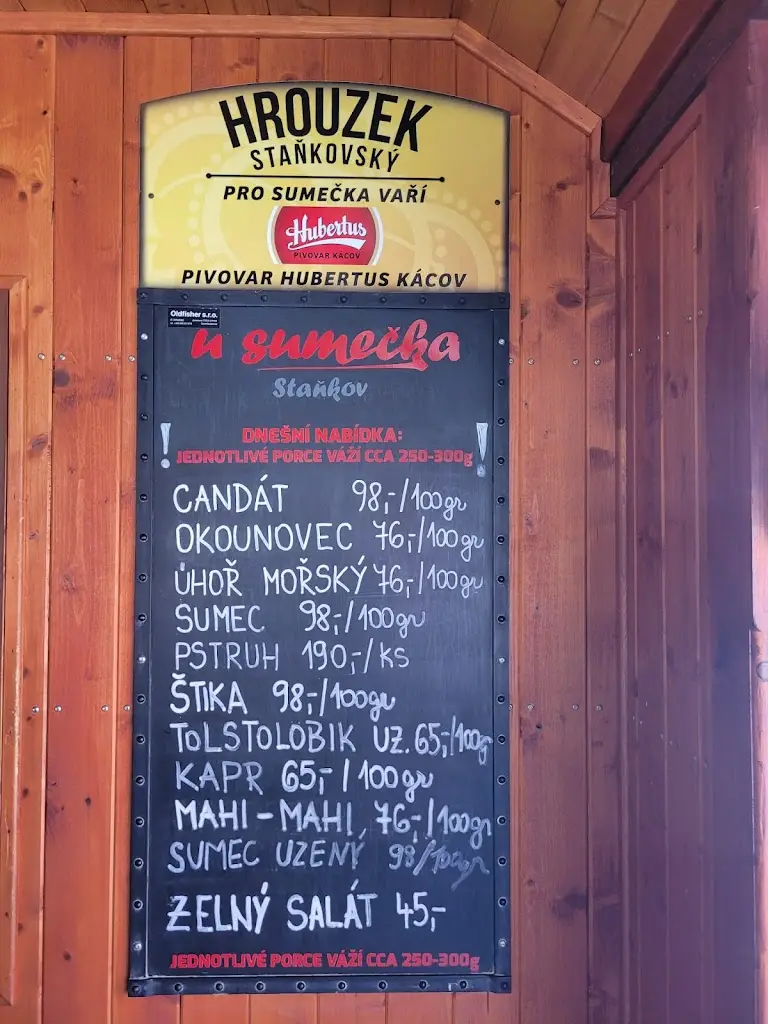 HROUZEK
STAŇKOVSKÝ
PRO SUMEČKA VAŘÍ
Hubertus
PIVOVAR KÁCOV
PIVOVAR HUBERTUS KÁCOV
Oldfisher s.r.o.
u sumečka
Staňkov
! DNEŠNÍ NABÍDKA: !
JEDNOTLIVÉ PORCE VÁŽÍ CCA 250-300g
CANDÁT 98,-/100gr
OKOUNOVEC 76,-/100gr
ÚHOŘ MOŘSKÝ 76,-/100gr
SUMEC 98,-/100gr
PSTRUH 190,-/KS
ŠTIKA 98,-/100gr
TOLSTOLOBIK UZ. 65,-/100g
KAPR 65,-/100gr
MAHI-MAHI 76,-/100gr
SUMEC UZENÝ 98/100gr
ZELNÝ SALÁT 45,-
JEDNOTLIVÉ PORCE VÁŽÍ CCA 250-300g